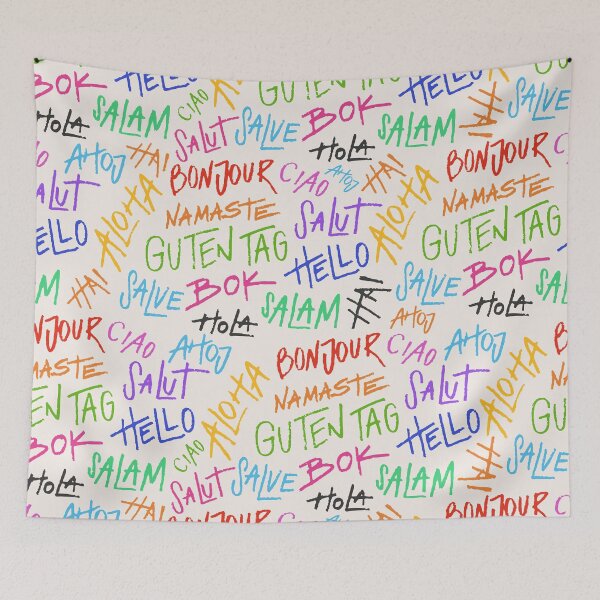 BOK HELLO CIAO ALOHA GUTEN TAG HELLO
HOLA SALAM SALUT SALVE BOK SALAM SALVE
AHOJ HAI HOLA BONJOUR
SALUT BONJOUR CIAO AHOJ HAI
ALOHA NAMASTE SALUT ALOHA NAMASTE
ELLO GUTEN TAG HELLO GUTEN TAG
M HAI SALVE BOK SALVE BOK SALAM
HOLA SALAM AHOJ HOLA
NJOUR CIAO AHOJ BONJOUR CIAO AHOJ
MASTE SALUT ALOHA NAMASTE SALUT ALOHA
EN TAG HELLO GUTEN TAG HELLO GUTEN
BOK SALAM CIAO BOK SALVE
HOLA SALUT SALVE HOLA SALAM
AHOJ HAI BONJOUR HAI BONJOUR